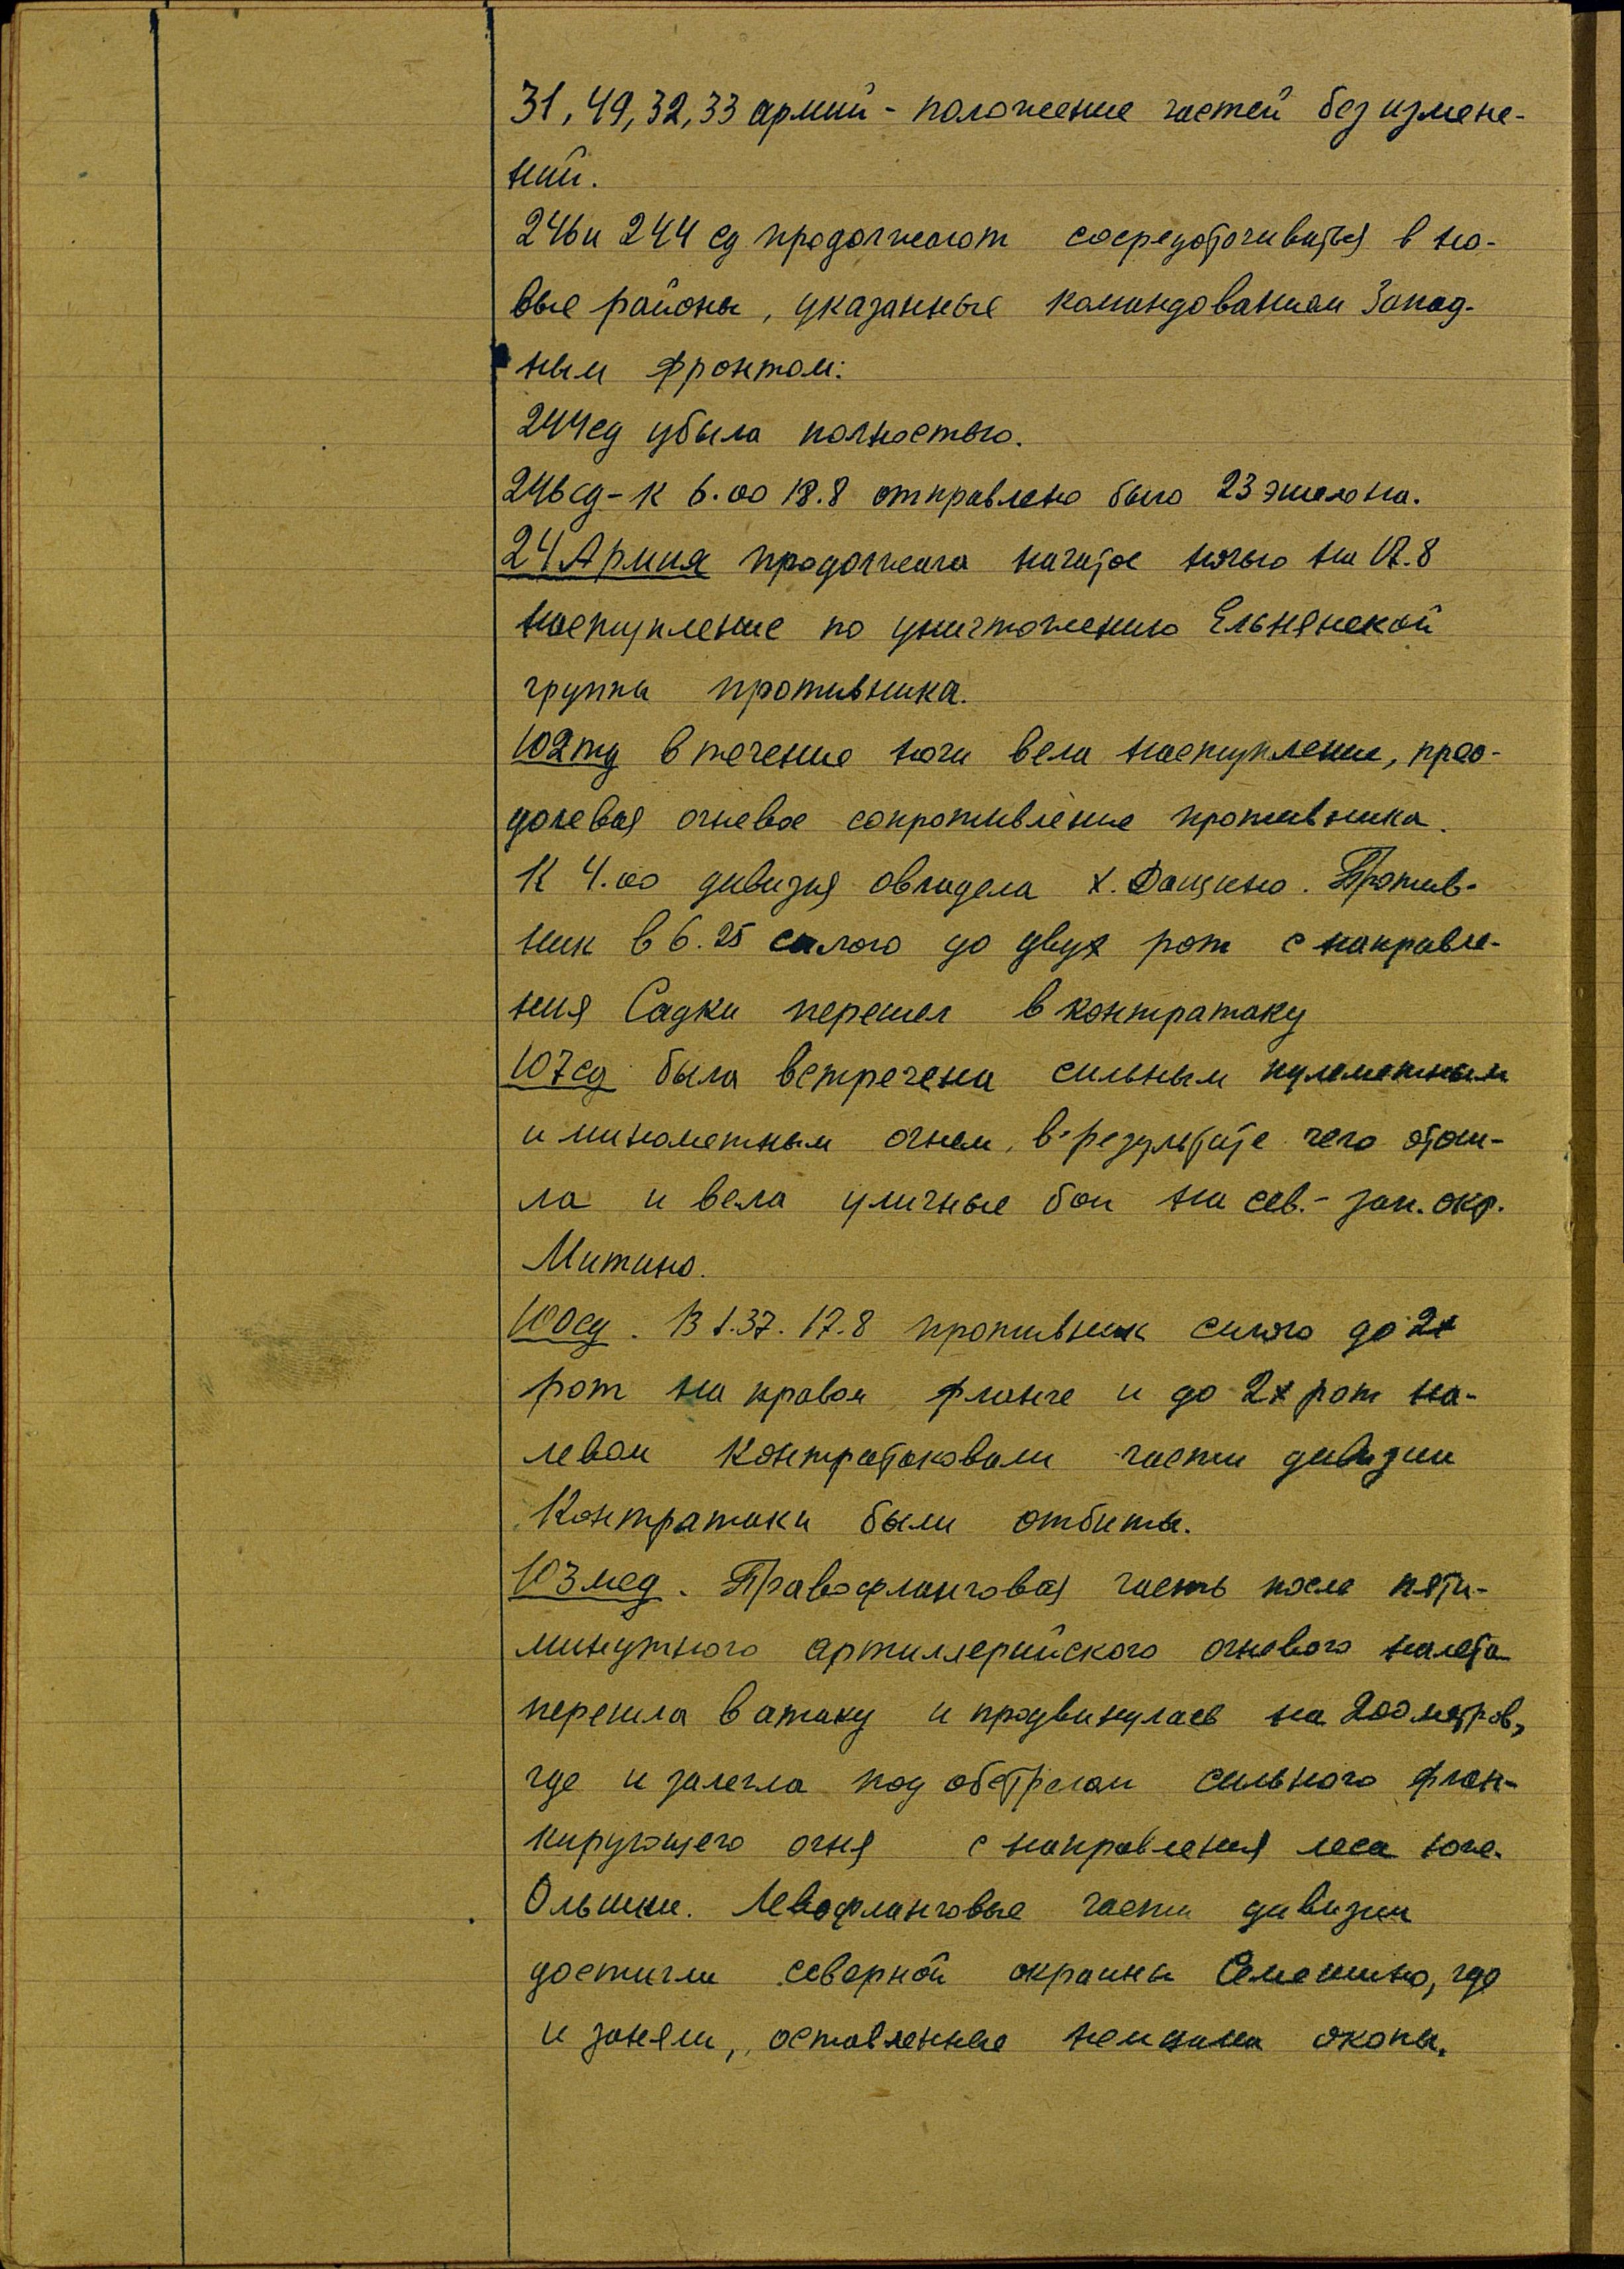 31, 49, 32, 33 армий - положение частей без измене-
ний.
246 и 244 сд продолжают сосредотачиваться в но-
вые районы, указанные командованием Запад-
ным фронтом:
244 сд убыла полностью.
246 сд - к 6.00 18.8 отправлено было 23 эшелона.
24 Армия продолжала начатое ночью на 17.8
наступление по уничтожению Ельнянской
группы противника.
102 тд в течение ночи вела наступление, прео-
долевая огневое сопротивление противника.
К 4.00 дивизия овладела х. Дащино. Против-
ник в 6.25 силою до двух рот с направле-
ния Садки перешел в контратаку
107 сд была встречена сильным пулеметным
и минометным огнем, в результате чего отош-
ла и вела уличные бои на сев.-зап. окр.
Митино.
100 сд. В 1.37. 17.8 противник силою до 2х
рот на правом фланге и до 2х рот на-
левом контратаковали части дивизии
Контратаки были отбиты.
103 мсд. Правофланговая часть после пяти-
минутного артиллерийского огневого налета
перешла в атаку и продвинулась на 200 метров,
где и залегла под обстрелом сильного флан-
кирующего огня с направления леса юже.
Ольши. Левофланговые части дивизии
достигли северной окраины Семешино, где
и заняли, оставленные немцами окопы.